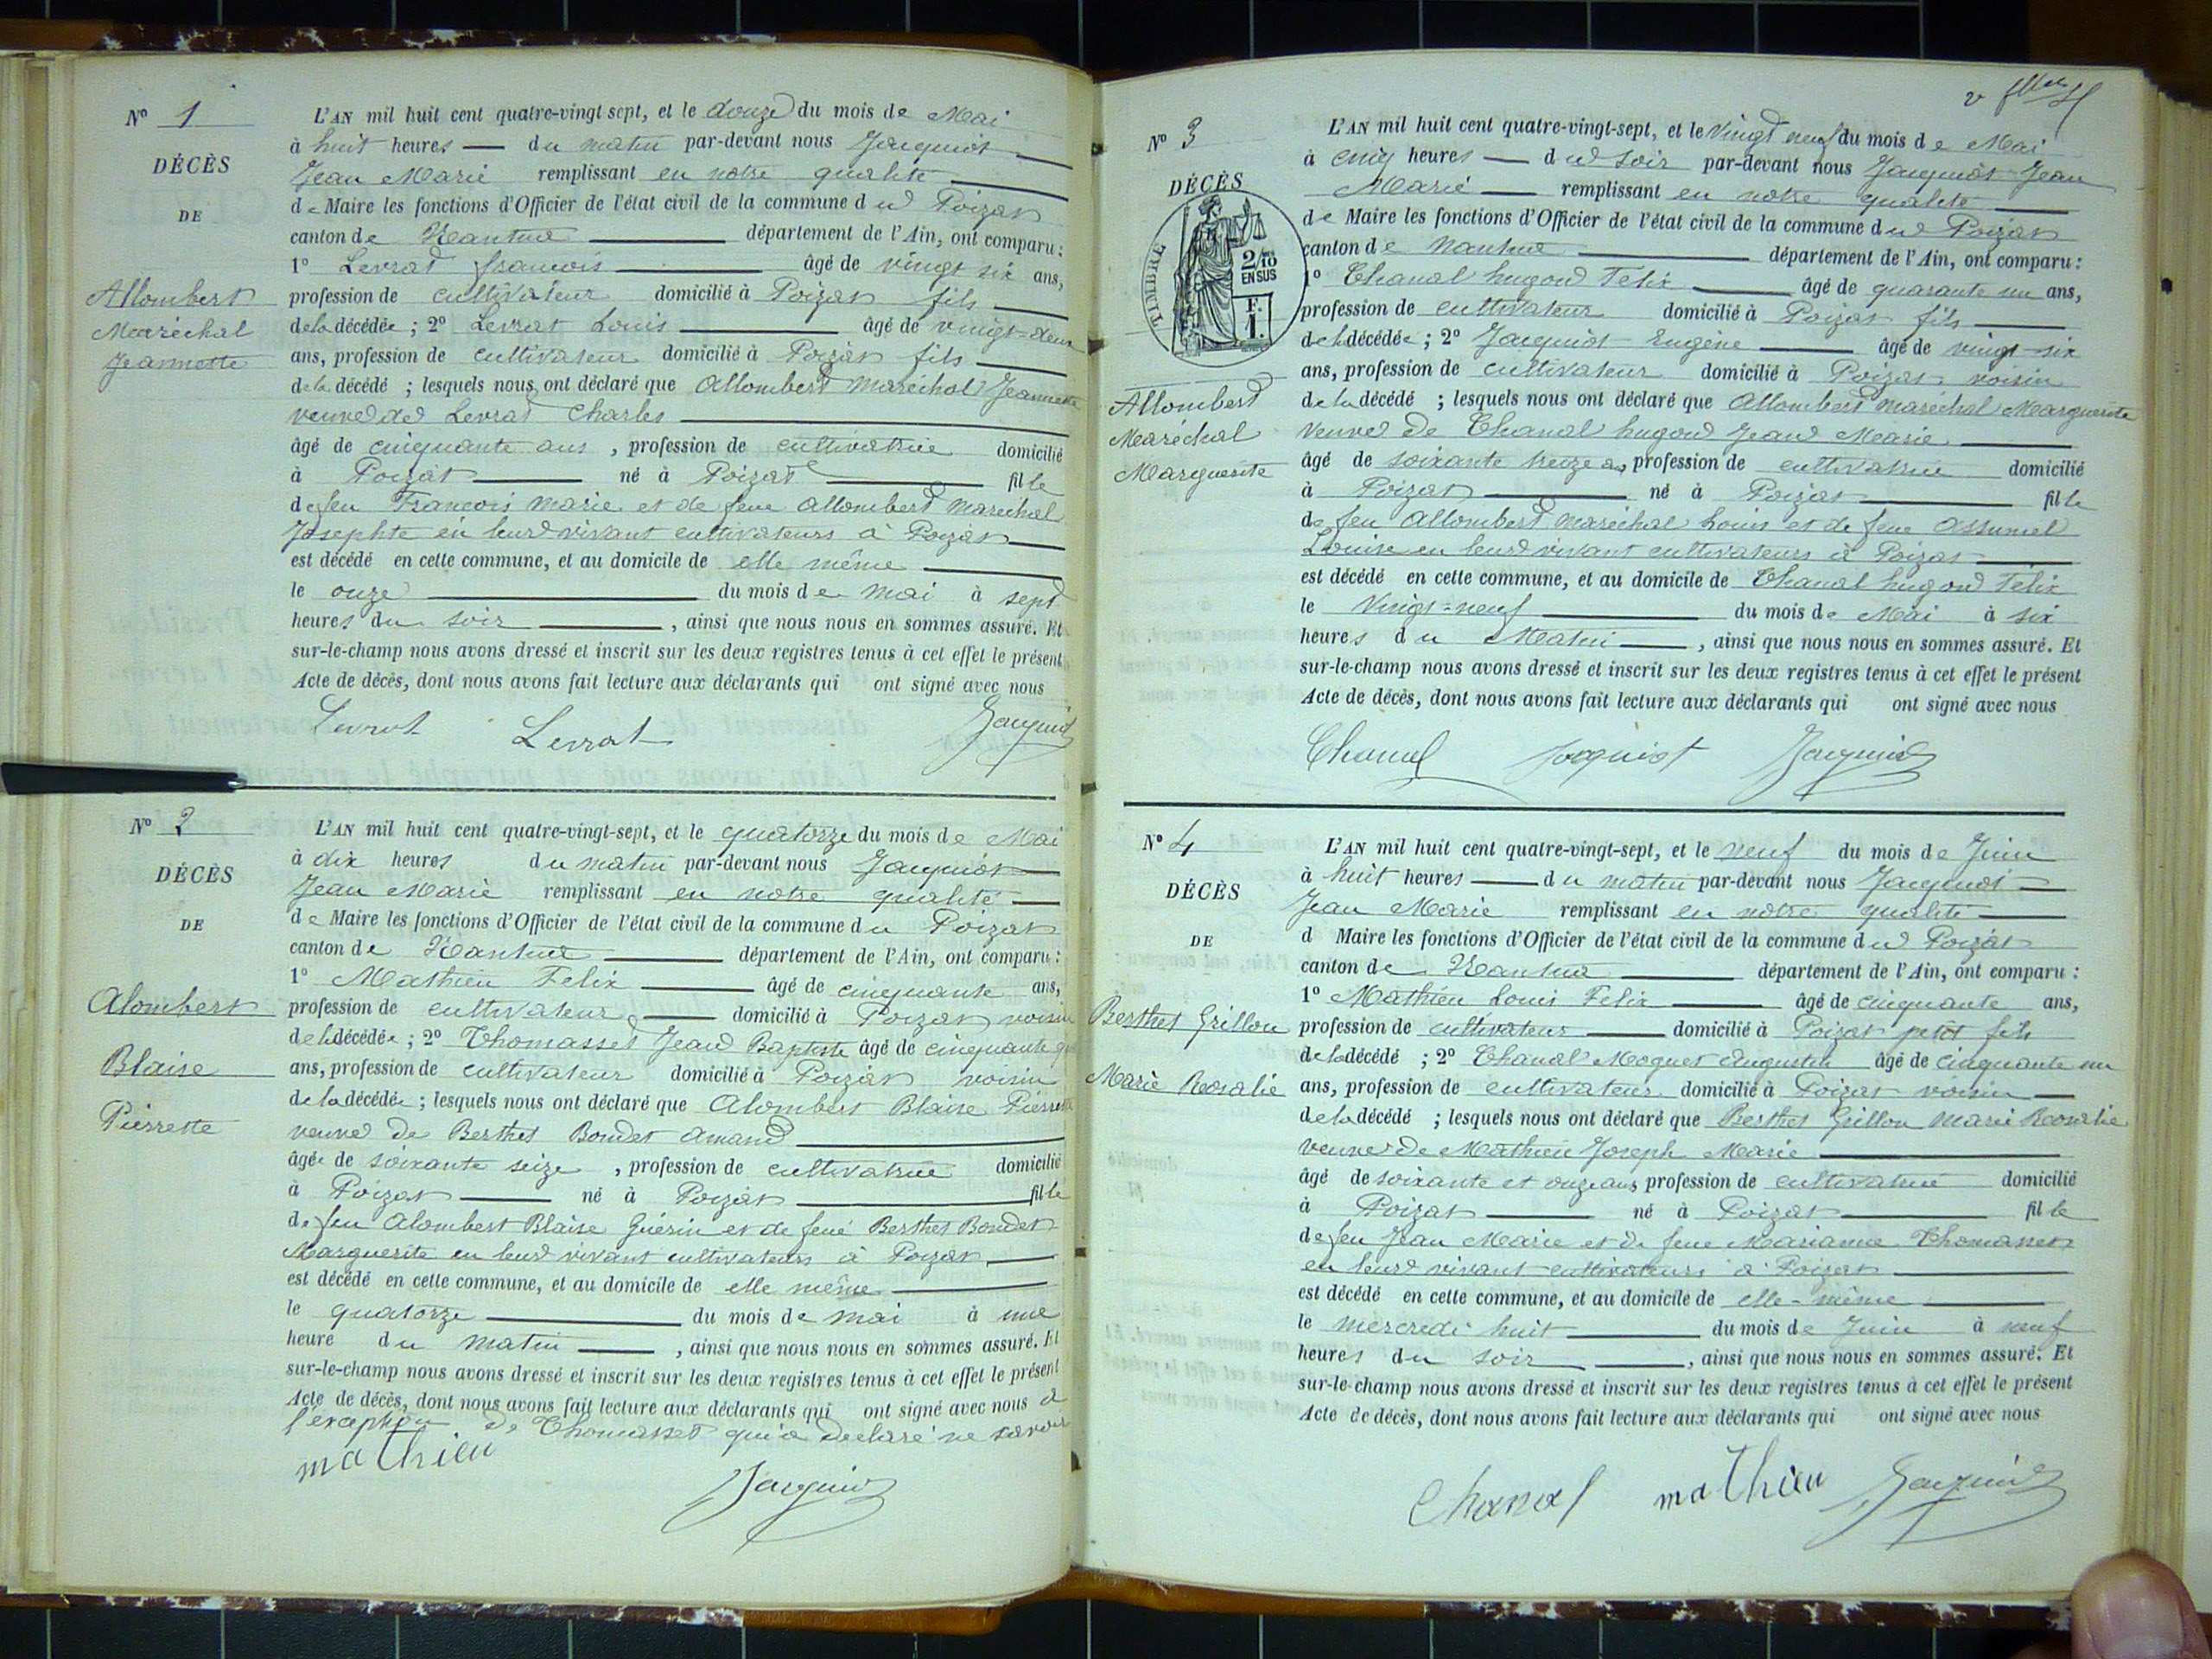 N° 1
DÉCÈS
DE
Allombert
Maréchal
Jeannette
L'AN mil huit cent quatre-vingt sept, et le douze du mois de Mai
à huit heures du matin par-devant nous Jacquiot
Jean Marie remplissant en notre qualité
de Maire les fonctions d'Officier de l'état civil de la commune du Poizat
canton de Nantua département de l'Ain, ont comparu :
1° Levrat francois âgé de vingt six ans,
profession de cultivateur domicilié à Poizat fils
de la décédée ; 2° Levrat Louis âgé de vingt-deux
ans, profession de cultivateur domicilié à Poizat fils
de la décédé ; lesquels nous ont déclaré que Allombert Maréchal Jeannette
veuve de Levrat Charles
âgé de cinquante ans , profession de cultivatrice domicilié
à Poizat né à Poizat fille
de feu Francois Marie et de feue Allombert Marechal
Josephte en leur vivant cultivateurs à Poizat
est décédé en cette commune, et au domicile de elle même
le onze du mois de mai à sept
heures du soir , ainsi que nous nous en sommes assuré. Et
sur-le-champ nous avons dressé et inscrit sur les deux registres tenus à cet effet le présent
Acte de décès, dont nous avons fait lecture aux déclarants qui ont signé avec nous
Levrat Levrat Jacquiot
N° 2
DÉCÈS
DE
Alombert
Blaise
Pierrette
L'AN mil huit cent quatre-vingt-sept, et le quatorze du mois de Mai
à dix heures du matin par-devant nous Jacquiot
Jean Marie remplissant en notre qualité
de Maire les fonctions d'Officier de l'état civil de la commune du Poizat
canton de Nantua département de l'Ain, ont comparu :
1° Mathieu Felix âgé de cinquante ans,
profession de cultivateur domicilié à Poizat voisin
de la décédée ; 2° Thomasset Jean Baptiste âgé de cinquante
ans, profession de cultivateur domicilié à Poizat voisin
de la décédée ; lesquels nous ont déclaré que Alombert Blaise Pierrette
veuve de Berthet Bondet Amand
âgée de soixante seize , profession de cultivatrice domicilié
à Poizat né à Poizat fille
de feu Alombert Blaise Guérin et de feue Berthet Bondet
Marguerite en leur vivant cultivateurs à Poizat
est décédé en cette commune, et au domicile de elle même
le quatorze du mois de mai à une
heure du matin , ainsi que nous nous en sommes assuré. Et
sur-le-champ nous avons dressé et inscrit sur les deux registres tenus à cet effet le présent
Acte de décès, dont nous avons fait lecture aux déclarants qui ont signé avec nous à
l'exception de Thomasset qui a declaré ne savoir
mathieu Jacquiot
N° 3
DÉCÈS
TIMBRE
2/10
EN SUS
F.
1.
Allombert
Maréchal
Marguerite
L'AN mil huit cent quatre-vingt-sept, et le Vingt neuf du mois de Mai
à cinq heures du soir par-devant nous Jacquiot Jean
Marie remplissant en notre qualité
de Maire les fonctions d'Officier de l'état civil de la commune du Poizat
canton de Nantua département de l'Ain, ont comparu :
1° Chanal hugon Felix âgé de quarante un ans,
profession de cultivateur domicilié à Poizat fils
de la décédée ; 2° Jacquiot Eugène âgé de vingt-six
ans, profession de cultivateur domicilié à Poizat voisin
de la décédé ; lesquels nous ont déclaré que Allombert Maréchal Marguerite
veuve de Chanal hugon Jean Marie
âgé de soixante treize a, profession de cultivatrice domicilié
à Poizat né à Poizat fille
de feu Allombert Maréchal Louis et de feue Assumel
Louise en leur vivant cultivateurs à Poizat
est décédé en cette commune, et au domicile de Chanal hugon Felix
le Vingt-neuf du mois de Mai à six
heures du Matin , ainsi que nous nous en sommes assuré. Et
sur-le-champ nous avons dressé et inscrit sur les deux registres tenus à cet effet le présent
Acte de décès, dont nous avons fait lecture aux déclarants qui ont signé avec nous
Chanal Jacquiot Jacquiot
N° 4
DÉCÈS
DE
Berthet Grillon
Marie Rosalie
L'AN mil huit cent quatre-vingt-sept, et le neuf du mois de Juin
à huit heures du matin par-devant nous Jacquiot
Jean Marie remplissant en notre qualité
d Maire les fonctions d'Officier de l'état civil de la commune du Poizat
canton de Nantua département de l'Ain, ont comparu :
1° Mathieu Louis Felix âgé de cinquante ans,
profession de cultivateur domicilié à Poizat petit fils
de la décédé ; 2° Chanal Moquet Augustin âgé de cinquante un
ans, profession de cultivateur domicilié à Poizat voisin
de la décédé ; lesquels nous ont déclaré que Berthet Grillon Marie Rosalie
veuve de Mathieu Joseph Marie
âgé de soixante et onze ans, profession de cultivatrice domicilié
à Poizat né à Poizat fille
de feu Jean Marie et de feue Marianne Thomasset
en leur vivant cultivateurs à Poizat
est décédé en cette commune, et au domicile de elle-même
le mercredi huit du mois de Juin à neuf
heures du soir , ainsi que nous nous en sommes assuré. Et
sur-le-champ nous avons dressé et inscrit sur les deux registres tenus à cet effet le présent
Acte de décès, dont nous avons fait lecture aux déclarants qui ont signé avec nous
Chanal mathieu Jacquiot